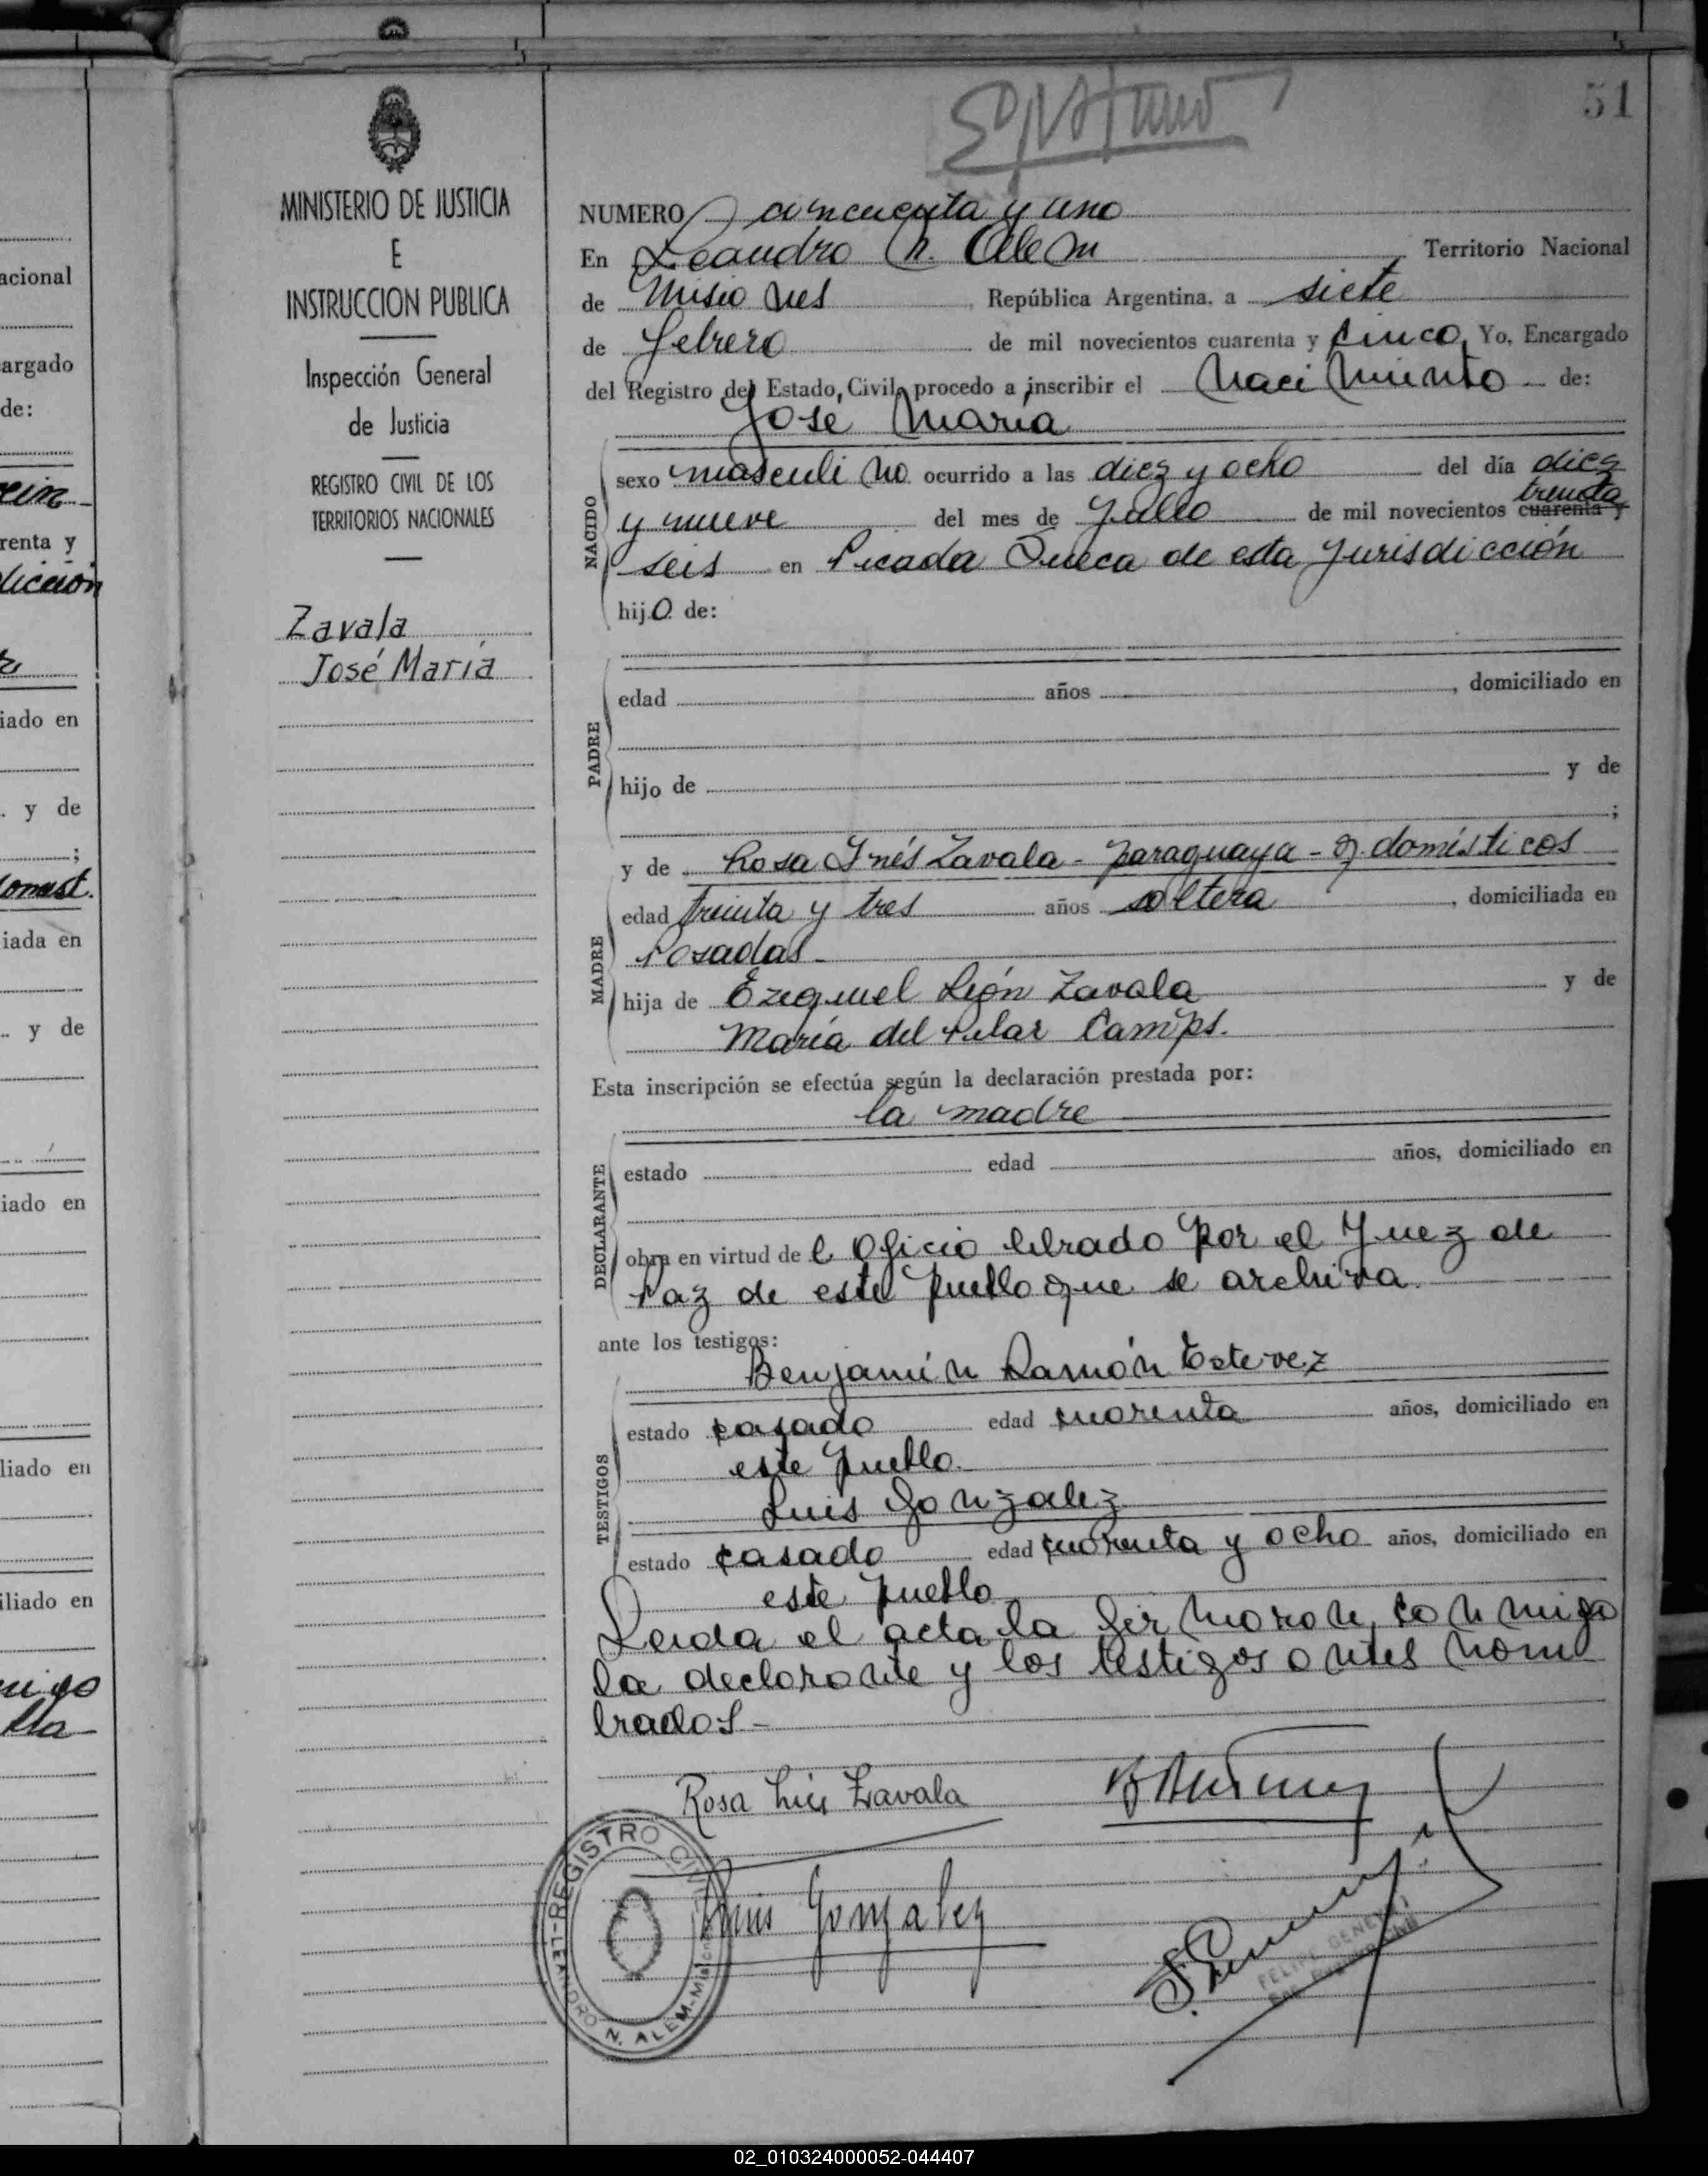 51
MINISTERIO DE JUSTICIA
E
INSTRUCCION PUBLICA
Inspección General
de Justicia
REGISTRO CIVIL DE LOS
TERRITORIOS NACIONALES
Zavala
José María
NUMERO cincuenta y uno
En Leandro N. Alem Territorio Nacional
de Misiones República Argentina, a siete
de febrero de mil novecientos cuarenta y cinco, Yo, Encargado
del Registro del Estado Civil, procedo a inscribir el Nacimiento de:
Jose Maria
NACIDO
sexo masculino ocurrido a las diez y ocho del día diez
treinta
y nueve del mes de Julio de mil novecientos cuarenta y
seis en Picada Sueca de esta Jurisdicción
hijo de:
PADRE
edad años , domiciliado en
hijo de y de
;
MADRE
y de Rosa Inés Zavala - paraguaya - q. domésticos
edad treinta y tres años soltera , domiciliada en
Posadas
hija de Ezequiel León Zavala y de
María del Pilar Camps.
Esta inscripción se efectúa según la declaración prestada por:
la madre
DECLARANTE
estado edad años, domiciliado en
obra en virtud del Oficio librado por el Juez de
Paz de este pueblo que se archiva.
ante los testigos:
Benjamín Ramón Estevez
TESTIGOS
estado casado edad cuarenta años, domiciliado en
este pueblo.
Luis Gonzalez
estado casado edad cuarenta y ocho años, domiciliado en
este pueblo
Leida el acta la firmaron conmigo
la declarante y los testigos antes nom
brados-
Rosa Inés Zavala
Luis Gonzalez
REGISTRO CIVIL
LEANDRO N. ALEM-Misiones
acional
argado
de:
renta y
dicción
iado en
y de
;
domest.
iada en
y de
iado en
liado en
iliado en
02_010324000052-044407